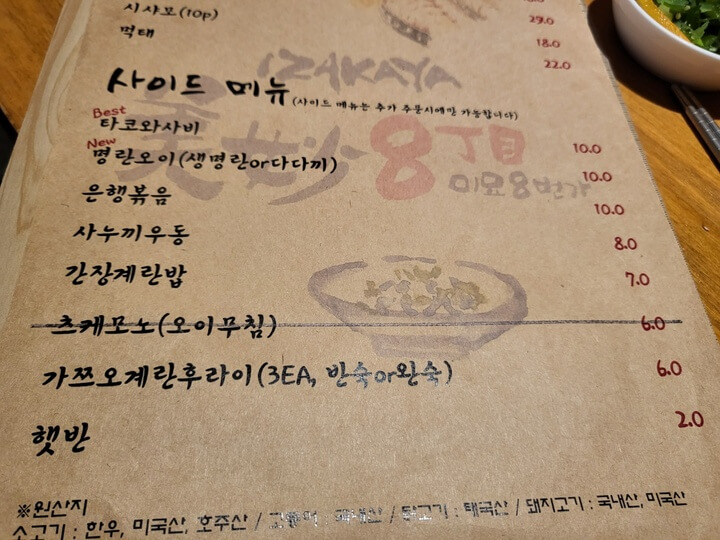 시샤모(10p) 29.0
먹태 18.0
22.0
IZAKAYA
사이드 메뉴 (사이드 메뉴는 추가 주문시에만 가능합니다)
Best
타코와사비 10.0
New
명란오이(생명란or다다끼) 10.0
8丁目
미묘8번가
은행볶음 10.0
사누끼우동 8.0
간장계란밥 7.0
츠케모노(오이무침) 6.0
가쯔오계란후라이(3EA, 반숙or완숙) 6.0
햇반 2.0
※원산지
소고기 : 한우, 미국산, 호주산 / 고등어 : 국내산 / 닭고기 : 태국산 / 돼지고기 : 국내산, 미국산